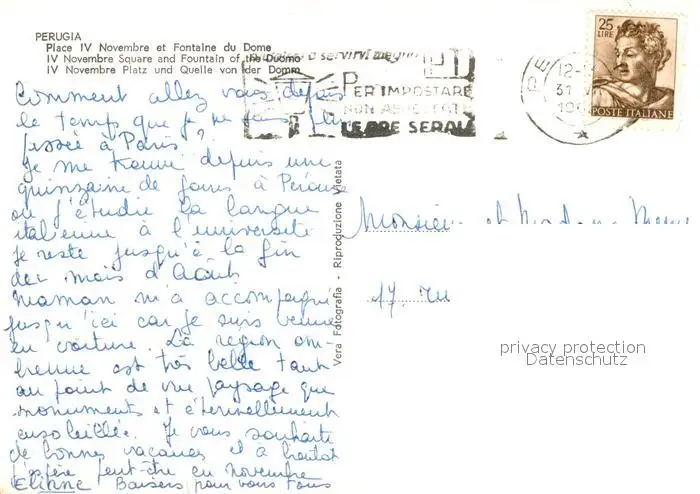 PERUGIA
Place IV Novembre et Fontaine du Dome
IV Novembre Square and Fountain of the Duomo
IV Novembre Platz und Quelle von der Domm
a servirvi meglio
PER IMPOSTARE
NON ASPETTATE
SERA
12-
31
19
25
LIRE
POSTE ITALIANE
Comment allez vous depuis
le temps que je ne suis plus
à Paris?
Je me trouve depuis une
quinzaine de jours à Pérouse
où j'étudie la langue
italienne à l'université
Je reste jusqu'à la fin
du mois d'Août.
Maman m'a accompagné
jusqu'ici car je suis venue
en voiture. La région om-
brienne est très belle tant
au point de vue paysage que
monuments et éternellement
ensoleillée. Je vous souhaite
de bonnes vacances et à bientôt
j'espère peut-être en novembre
Eliane Baisers pour vous tous
Vera Fotografia - Riproduzione Vietata
Monsieur et Madame
17, rue
privacy protection
Datenschutz